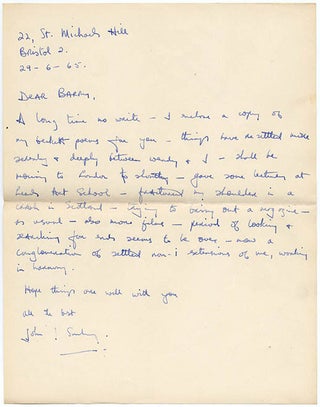 22, St. Michaels Hill
Bristol 2.
29-6-65.
DEAR BARRY,
A long time no write - I enclose a copy of
my beckett poems for you - things have resettled more
& deeply between wendy & I - shall be
moving to London shortly - gave some lectures at
Leeds Art School - fractured my shoulder in a
crash in Scotland - trying to bring out a magazine -
as usual - also more films - period of looking &
searching for ends seems to be over - now a
conglomeration of settled non-I extensions of me, working
in harmony.
Hope things are well with you
all the best
John